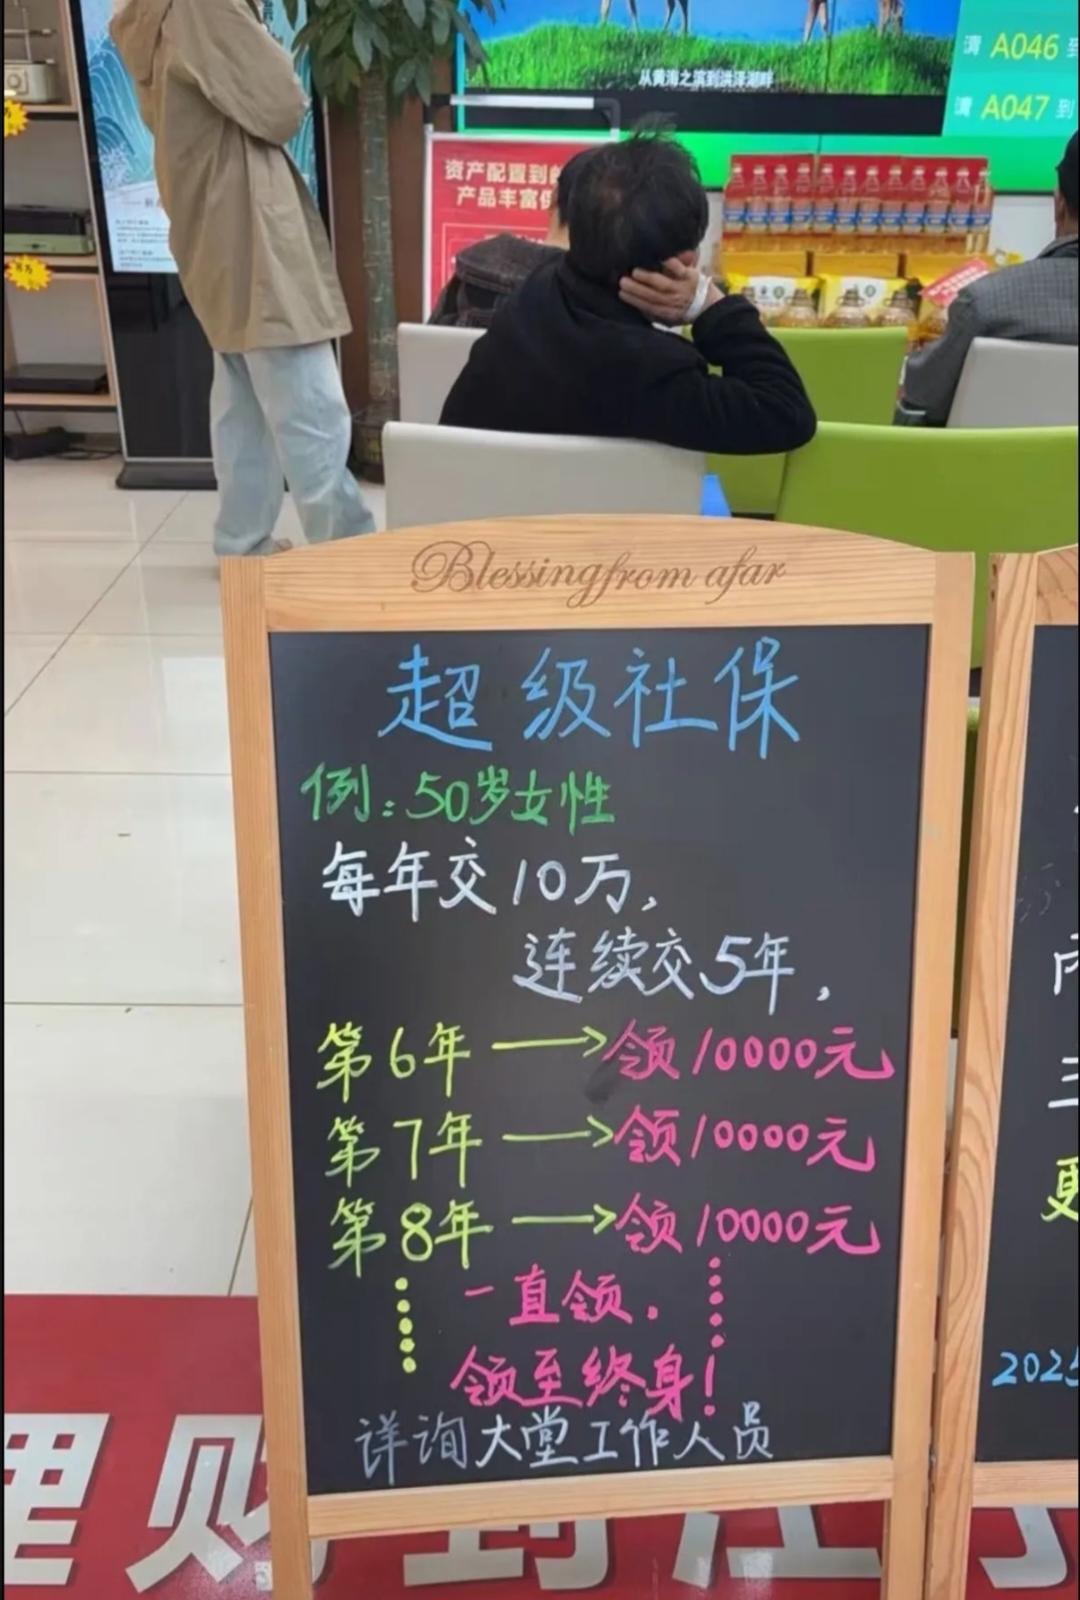 从黄海之滨到洪泽湖畔
请 A046 到
请 A047 到
资产配置到
产品丰富
Blessing from afar
超级社保
例：50岁女性
每年交10万，
连续交5年，
第6年→领10000元
第7年→领10000元
第8年→领10000元
一直领，
领至终身！
详询大堂工作人员
2025
理财到江